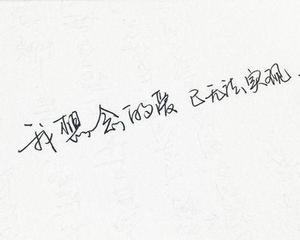 我想念的爱 已无法实现.